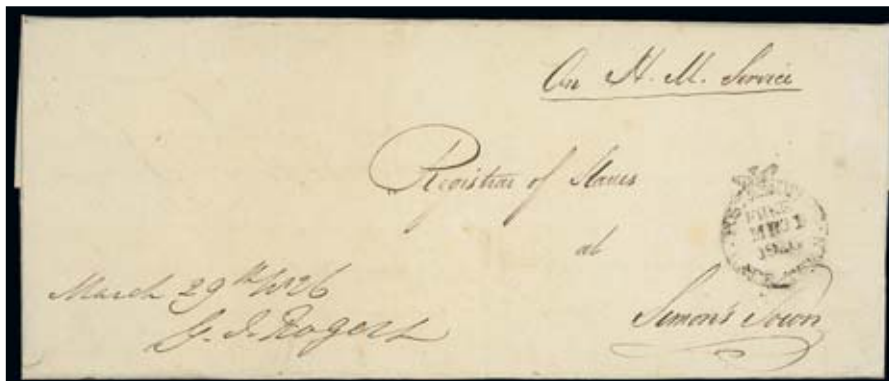 On H. M. Service
Registrar of Slaves
at
Simon's Town
March 29th 1826
G. J. Rogers
POST
FREE
MR 31